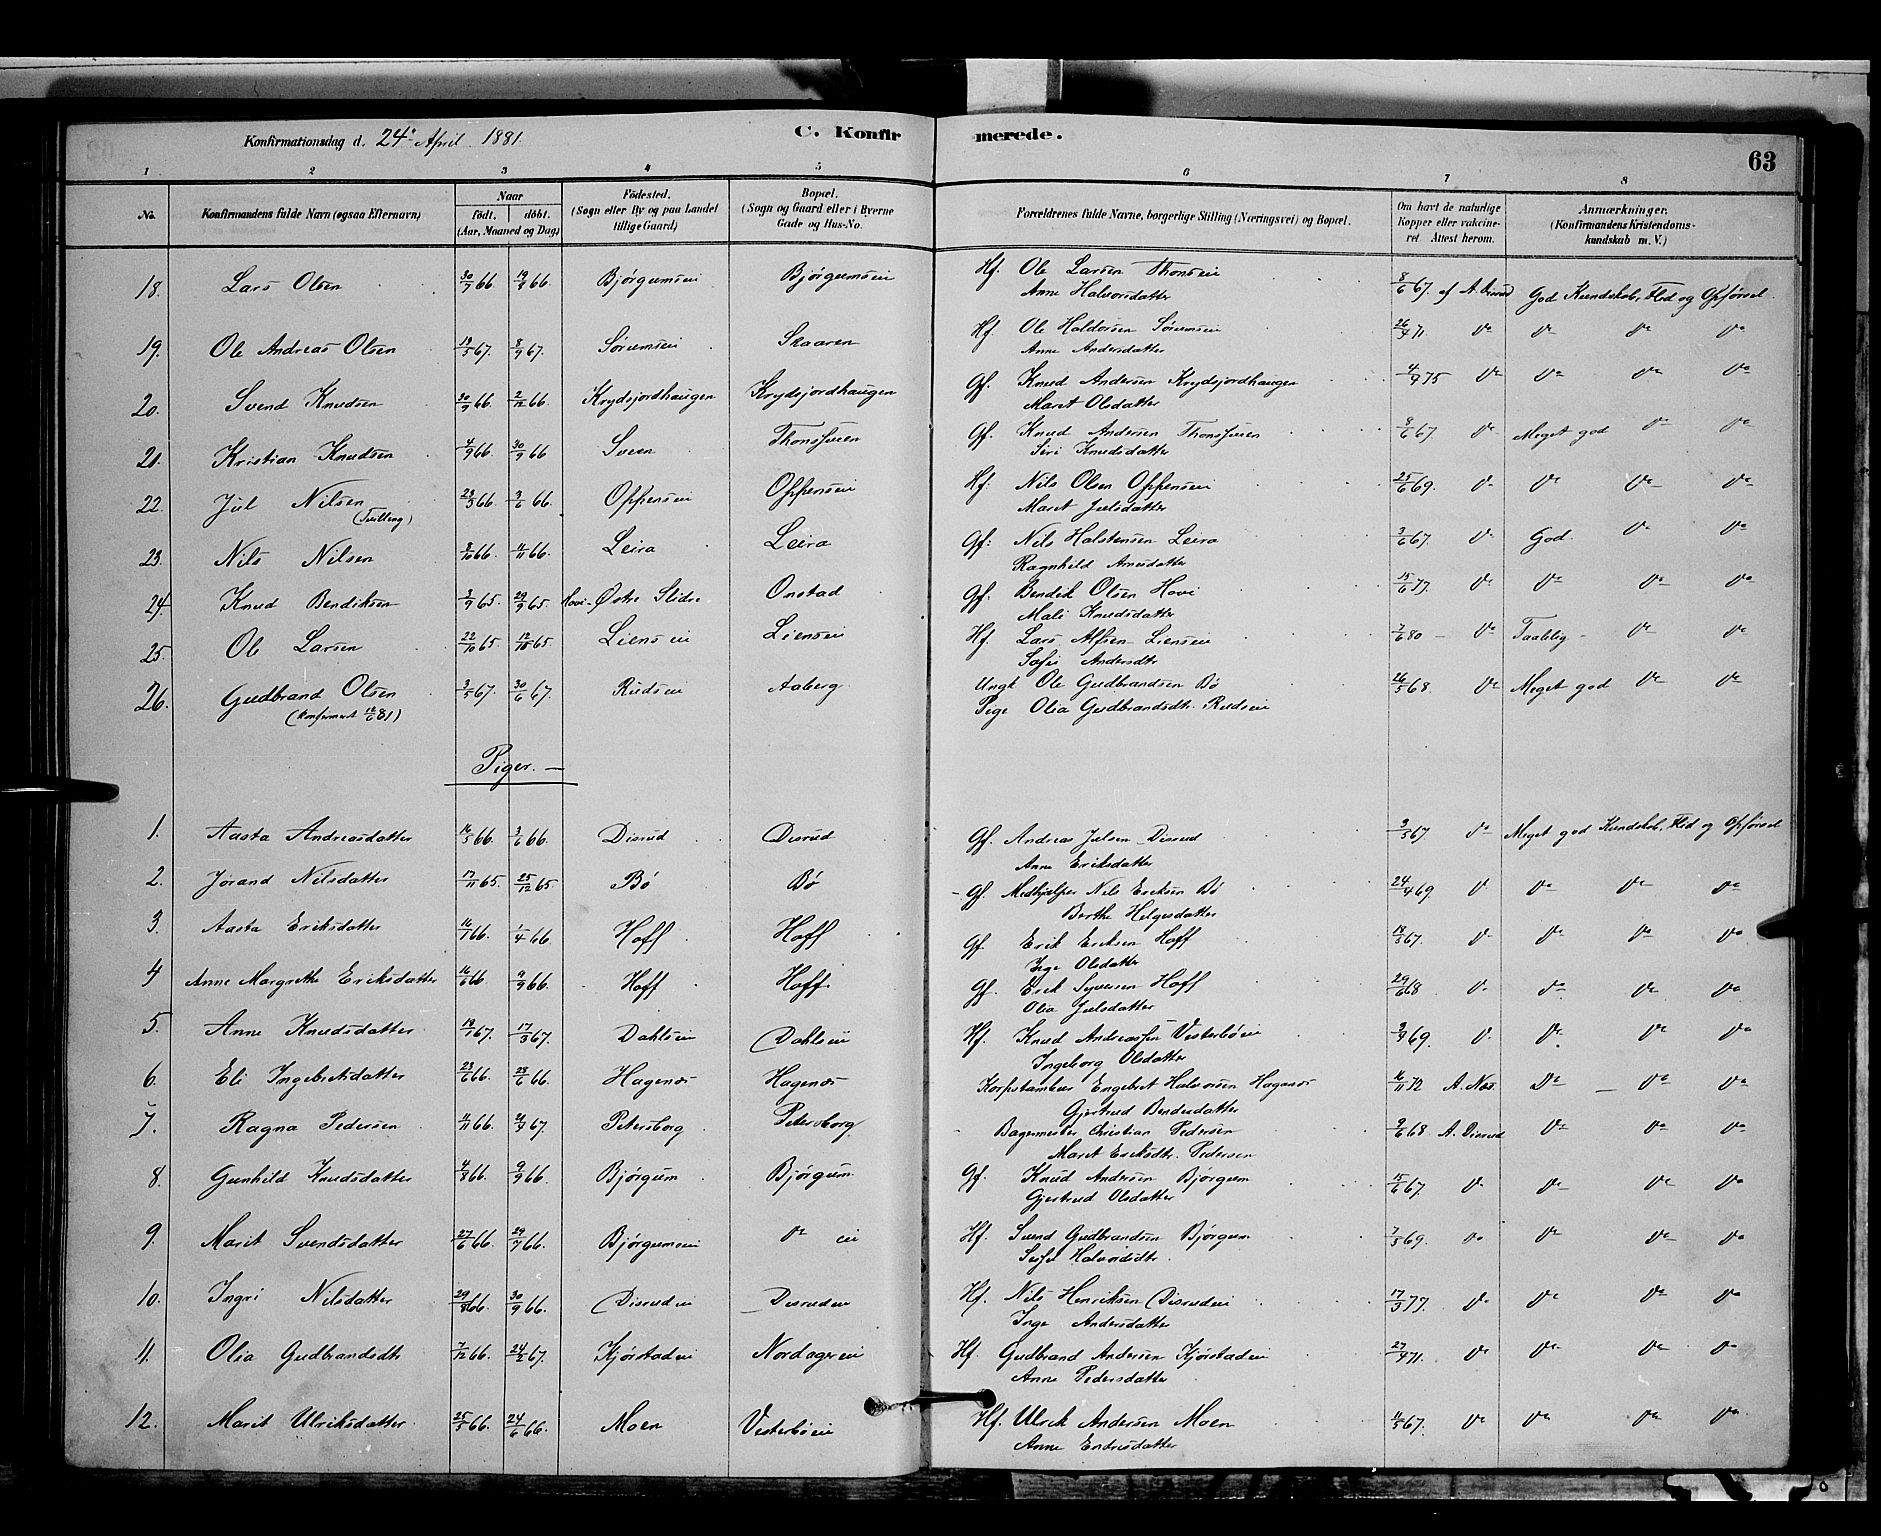 Konfirmationsdag d. 24de April 1881.
C. Konfirmerede.
63
1 2 3 4 5 6 7 8
No.
Konfirmandens fulde Navn (ogsaa Efternavn)
Naar
født. døbt.
(Aar, Maaned og Dag)
Fødested.
(Sogn eller By og paa Landet
tillige Gaard)
Bopæl.
(Sogn og Gaard eller i Byerne
Gade og Hus-No.
Forældrenes fulde Navne, borgerlige Stilling (Næringsvei) og Bopæl.
Om havt de naturlige
Kopper eller vakcine-
ret Attest herom.
Anmærkninger.
(Konfirmandens Kristendoms-
kundskab m. V.)
18. Lars Olsen 30/7 66 19/8 66 Bjørgumseie Bjørgumseie Hf. Ole Larsen Thonseie 8/6 67 af A. Disrud God Kundskab, Flid og Opførsel
Anne Halvorsdatter
19. Ole Andreas Olsen 19/5 67. 8/9 67. Sørumseie Skaaren Hf. Ole Haldorsen Sørumseie 26/4 71. Do Do Do Do
Anne Andersdatter
20. Svend Knudsen 30/9 66. 2/12 66. Krydsjordhaugen Krydsjordhaugen Gf. Knud Andersen Krydsjordhaugen 4/4 75 Do Do Do Do
Marit Olsdatter
21. Kristian Knudsen 4/9 66. 30/9 66 Sveen Thonsveen Gf. Knud Andersen Thonsveen 8/6 67. Do Meget god Do Do
Siri Knudsdatter
22. Jul Nilsen 23/3 66. 3/6 66. Oppenseie Oppenseie Hf. Nils Olsen Oppenseie 25/6 69. Do Do Do Do
(Tvilling) Marit Julsdatter
23. Nils Nilsen 8/10 66. 11/11 66. Leira Leira Gf. Nils Halstensen Leira 3/6 67. Do God. Do Do
Ragnhild Arnesdatter
24. Knud Bendiksen 3/9 65. 29/9 65. Hovi-Østre Slidre Onstad Gf. Bendik Olsen Hovi 15/6 77. Do Do Do Do
Mali Knudsdatter
25. Ole Larsen 22/10 65. 12/10 65. Lienseie Lienseie Hf. Lars Alfsen Lienseie 7/6 80 - Do Taalelig - Do Do
Sofie Andersdtr
26. Gudbrand Olsen 3/5 67. 30/6 67. Rudseie Aaberg Ungk Ole Gudbrandsen Bø 26/5 68. Do Meget god Do Do
(konfirmert 12/6 81) Pige Olia Gudbrandsdtr. Rudseie
Piger. —
1. Aasta Andreasdatter 16/5 66. 3/6 66. Disrud Disrud Gf. Andreas Julsen Disrud 3/5 67. Do Meget god Kundskab, Flid og Opførsel
Anne Eriksdatter
2. Jørand Nilsdatter 17/11 65. 25/12 65 Bø Bø Gf. Medhjælper Nils Eriksen Bø 24/4 69. Do Do Do Do
Berthe Helgesdatter
3. Aasta Eriksdatter 16/1 66. 1/4 66 Hoff Hoff Gf. Erik Eriksen Hoff 18/5 67. Do Do Do Do
Inge Olsdatter
4 Anne Margrethe Eriksdatter 16/6 66 9/9 66. Hoff Hoff Gf. Erik Syversen Hoff 29/6 68 Do Do Do Do
Olia Julsdatter
5. Anne Knudsdatter 19/1 67. 17/3 67. Dahlseie Dahlseie Hf. Knud Andreassen Vesterbøeie 3/4 69. Do Do Do Do
Ingeborg Olsdatter
6. Eli Ingebretsdatter 23/6 66. 28/6 66. Hagenæs Hagenæs Korpstambur Engebret Halvorsen Hagenæs 16/11 72 A. Næs. Do Do Do
Gjertrud Bendesdatter
7. Ragna Pedersen 11/11 66. 21/4 67. Petersborg Petersborg Bagermester Christian Pedersen 9/6 68 A. Disrud Do Do Do
Marit Eriksdtr. Pedersen
8. Gunhild Knudsdatter 4/8 66. 9/9 66. Bjørgum Bjørgum Gf. Knud Andersen Bjørgum 15/6 67. Do Do Do Do
Gjertrud Olsdatter
9. Marit Svendsdatter 27/6 66. 29/7 66. Bjørgumseie Do eie Hf. Svend Gudbrandsen Bjørgum 7/5 69. Do Do Do Do
Sessel Halvorsdtr.
10. Ingri Nilsdatter 29/8 66. 30/9 66. Disrudeie Disrudeie Hf. Nils Henriksen Disrudeie 17/3 77. Do Do Do Do
Inge Andersdatter
11. Olia Gudbrandsdtr 7/12 66. 24/2 67. Kjørstadeie Nordagereie Hf. Gudbrand Andersen Kjørstadeie 27/4 71. Do Do Do Do
Anne Pedersdatter
12. Marit Ulriksdatter 25/5 66. 24/6 66. Moen Vesterbøeie Hf. Ulrik Andersen Moen 11/5 67. Do Do Do Do
Anne Endresdatter